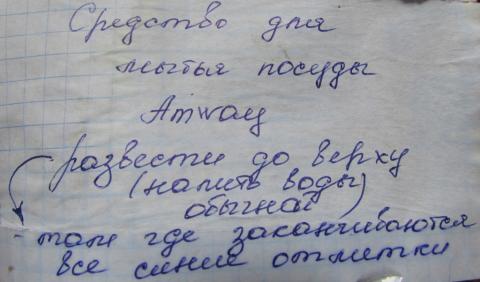 Средство для
мытья посуды
Amway
развести до верху
(налить воды)
обычной
- там где заканчиваются
все синие отметки